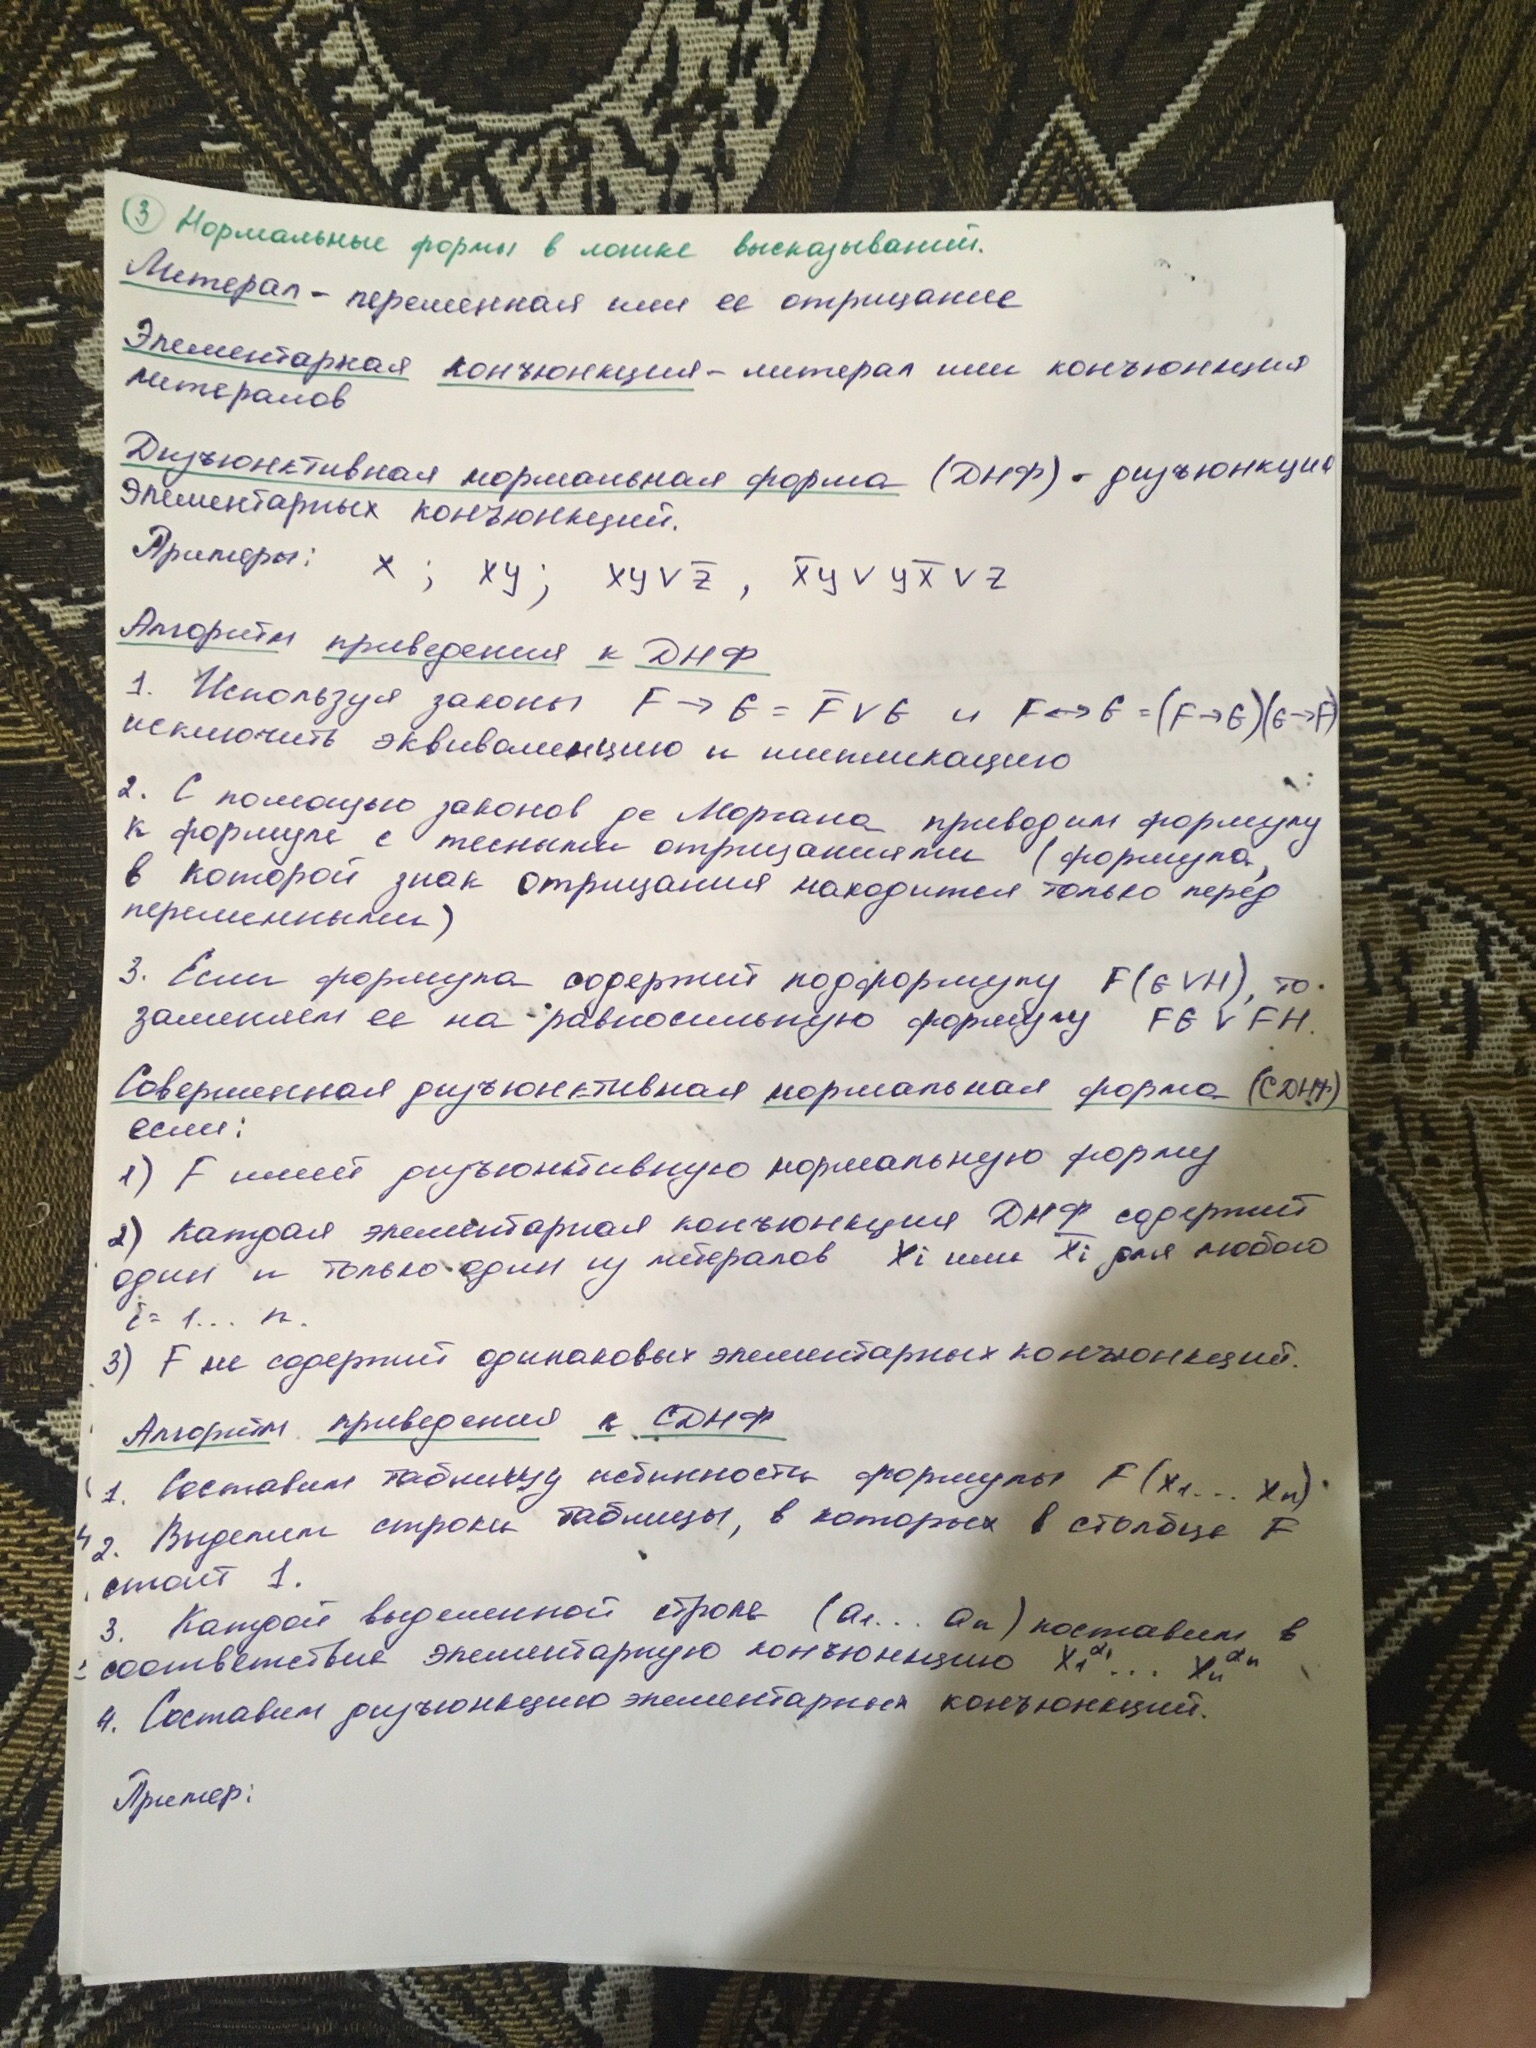 3 Нормальные формы в логике высказываний.
Литерал - переменная или ее отрицание
Элементарная конъюнкция - литерал или конъюнкция
литералов
Дизъюнктивная нормальная форма (ДНФ) - дизъюнкция
элементарных конъюнкций.
Примеры: x ; xy ; xy∨z̅ , x̅y∨yx̅∨z
Алгоритм приведения к ДНФ
1. Используя законы F→G = F̅∨G и F↔G = (F→G)(G→F)
исключить эквиваленцию и импликацию
2. С помощью законов де Моргана приводим формулу
к формуле с тесными отрицаниями (формула,
в которой знак отрицания находится только перед
переменными)
3. Если формула содержит подформулу F(G∨H), то
заменяем ее на равносильную формулу FG∨FH.
Совершенная дизъюнктивная нормальная форма (СДНФ)
если:
1) F имеет дизъюнктивную нормальную форму
2) Каждая элементарная конъюнкция ДНФ содержит
один и только один из литералов Xi или X̅i для любого
i = 1... n.
3) F не содержит одинаковых элементарных конъюнкций.
Алгоритм приведения к СДНФ
1. Составим таблицу истинности формулы F(x₁... xₙ)
2. Выделим строки таблицы, в которых в столбце F
стоит 1.
3. Каждой выделенной строке (a₁... aₙ) поставим в
соответствие элементарную конъюнкцию X₁^α₁... Xₙ^αₙ
4. Составим дизъюнкцию элементарных конъюнкций.
Пример: